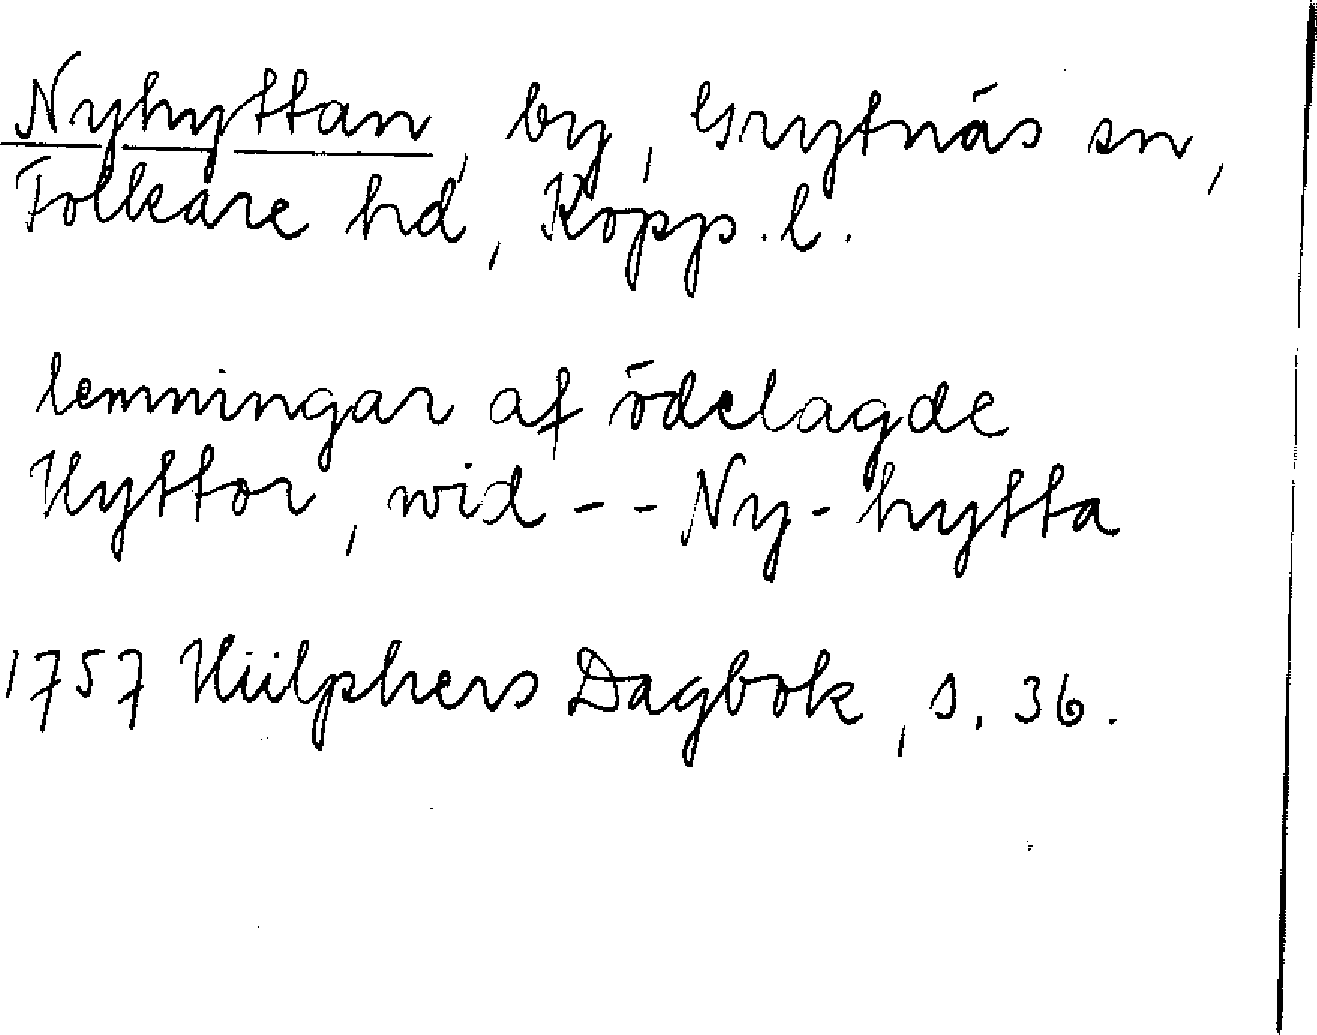 Nyhyttan, by, Grytnäs sn,
Folkare hd, Kopp. l.
lemningar af ödelagde
Hyttor, wid - - Ny-hytta
1757 Hülphers Dagbok, s. 36.